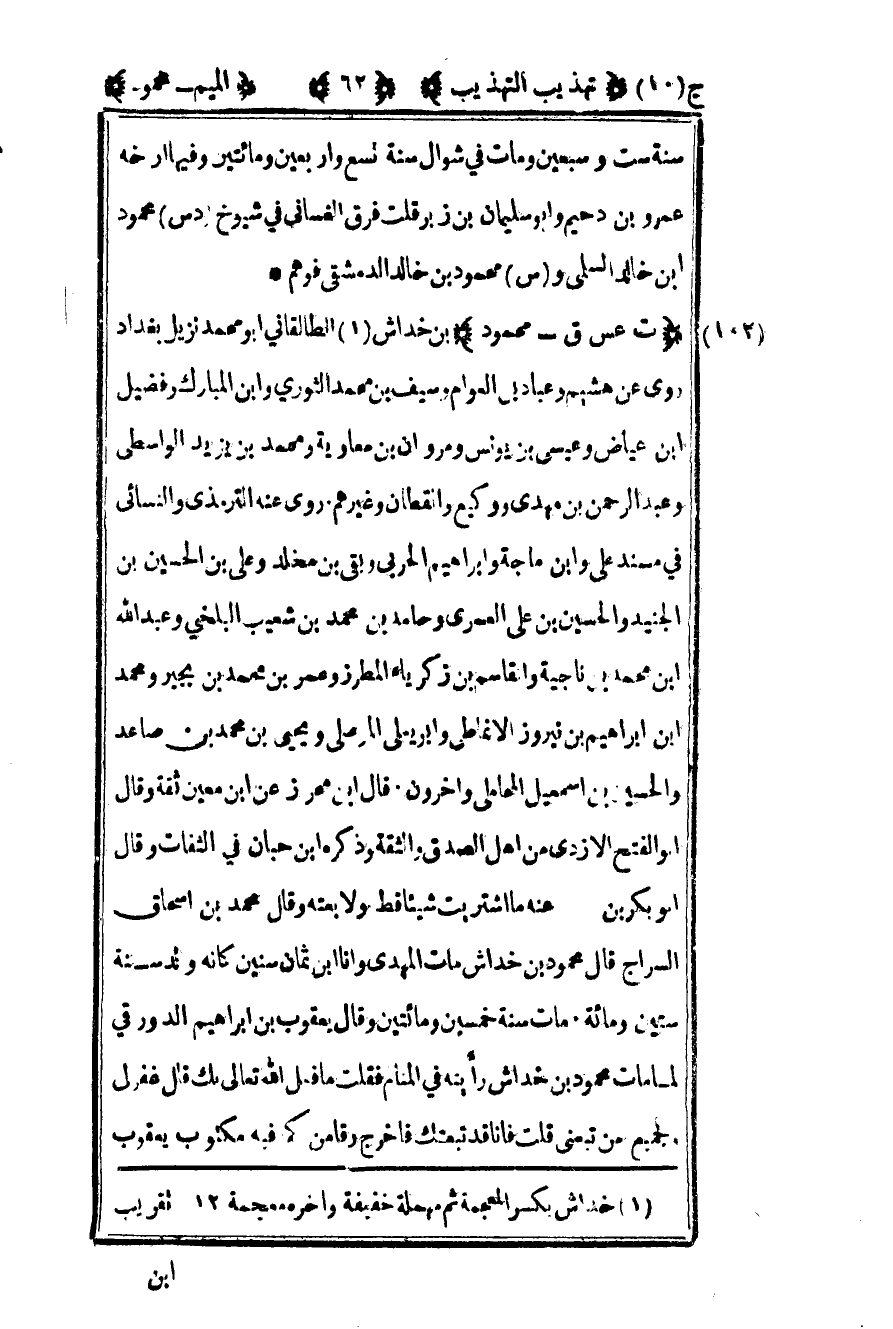 ج (١٠) ﴿ تهذيب التهذيب ﴾ ﴿ ٦٢ ﴾ ﴿ الميم ــ محمو ـ ﴾
سنة ست و سبعين ومات في شوال سنة تسع واربعين ومائتين وفيها ارخه
عمرو بن دحيم وابوسليمان بن زبر قلت فرق الغسانى في شيوخ (دس) محمود
ابن خالد السلمى و (س) محمود بن خالد الدمشقى فوهم *
(١٠٢) ﴿ ت عس ق ــ محمود ﴾ بن خداش (١) الطالقاني ابو محمد نزيل بغداد
روى عن هشيم وعباد بن العوام وسيف بن محمد الثوري وابن المبارك وفضيل
ابن عياض وعيسى بن يونس ومروان بن معاوية ومحمد بن يزيد الواسطى
وعبدالرحمن بن مهدى ووكيع والقطان وغيرهم . روى عنه الترمذى والنسائى
في مسند على وابن ماجة وابراهيم الحربى وبقى بن مخلد وعلى بن الحسين بن
الجنيد والحسين بن على العمرى وحامد بن محمد بن شعيب البلخي وعبدالله
ابن محمد بن ناجية والقاسم بن زكرياء المطرز وعمر بن محمد بن بجير ومحمد
ابن ابراهيم بن نيروز الانماطى وابويعلى الموصلى ويحيى بن محمد بن صاعد
والحسين بن اسمعيل المحاملى واخرون . قال ابن محرز عن ابن معين ثقة وقال
ابوالفتح الازدى من اهل الصدق والثقة وذكره ابن حبان في الثقات وقال
ابوبكر بن عنه ما اشتريت شيئا قط ولا بعته وقال محمد بن اسحاق
السراج قال محمود بن خداش مات المهدى وانا ابن ثمان سنين كانه ولد سنة
ستين ومائة . مات سنة خمسين ومائتين وقال يعقوب بن ابراهيم الدورقي
لما مات محمود بن خداش رأيته في المنام فقلت ما فعل الله تعالى بك قال غفر لى
ولجميع من تبعنى قلت فانا قد تبعتك فاخرج رقا من كمه فيه مكتوب يعقوب
(١) خداش بكسر المعجمة ثم مهملة خفيفة واخره معجمة ١٢ تقريب
ابن